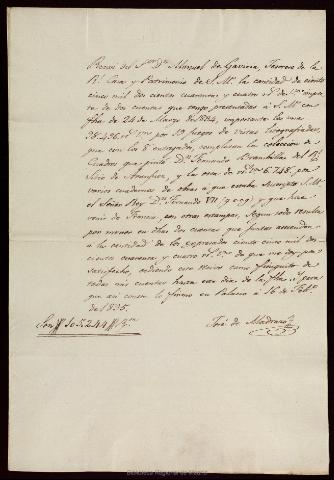 Recivi del Sor. Dn. Manuel de Gaviria, Tesorero de la
Rl. Casa y Patrimonio de S. M. la cantidad de ciento
cinco mil dos cientos cuarenta y cuatro rs. de vn. impor-
te de dos cuentas que tengo presentadas á S. M. con
fha. de 24 de Marzo de 1834, importante la una
de 10 juegos de vistas litografiadas,
que con los entregados, completan la coleccion de
Cuadros que pintó Dn. Fernando Brambilla del Rl.
Sitio de Aranjuez, y la otra de rs. vn. 6748, por
varios cuadernos de obras á que estaba Suscripto S. M.
el Señor Rey Dn. Fernando VII (q. e. g. g.) y que hice
venir de Francia, con otras estampas, segun todo resulta
por menor en dhas. dos cuentas que juntas ascienden
á la cantidad de los expresados ciento cinco mil dos-
cientos cuarenta y cuatro rs. vn. de que me doy por
satisfecho, cediendo este recivo como finiquito de
todas mis cuentas hasta este dia de la fha. y para
que asi conste lo firmo en Palacio á 16 de Febo.
de 1835.
Son 105,244 rs. vn.
José de Madrazo